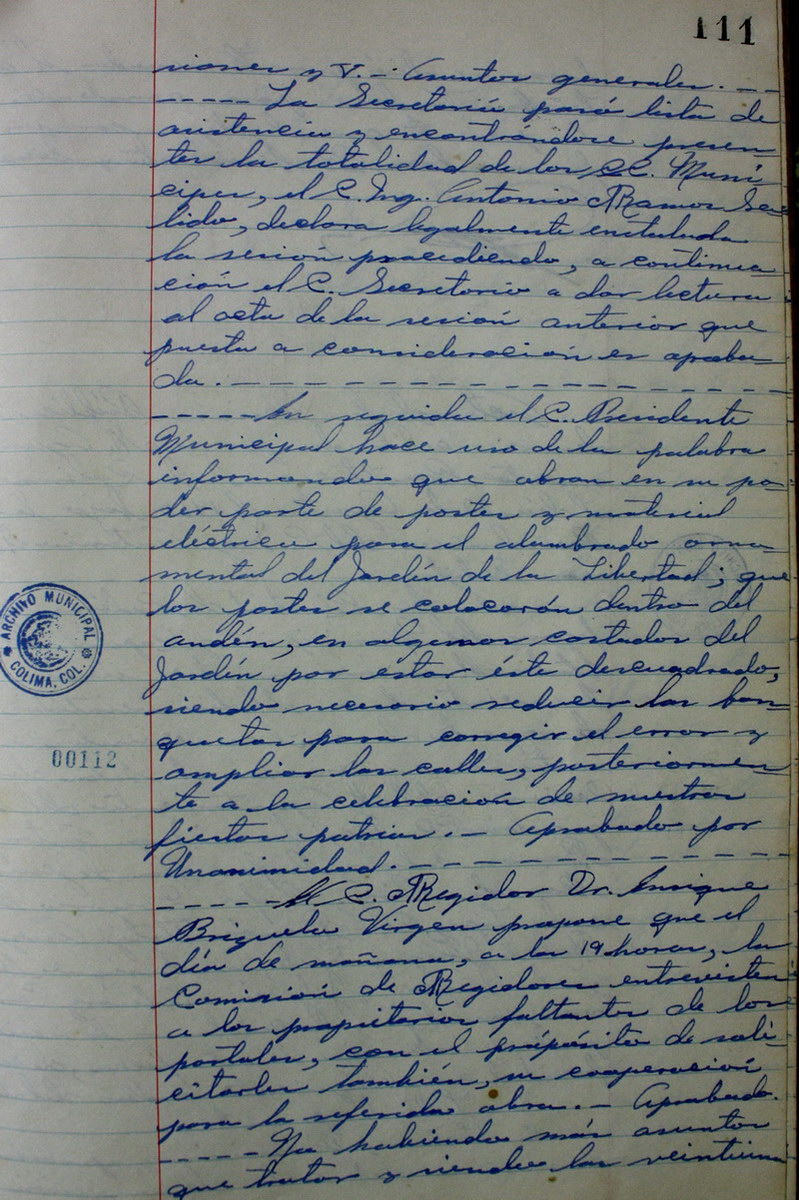 111
siones y V.- Asuntos generales. - -
- - - - - La Secretaría pasó lista de
asistencia y encontrándose presen-
tes la totalidad de los CC. Muní-
cipes, el C. Ing. Antonio Ramos Sa
lido, declara legalmente instalada
la sesión procediendo, a continua
ción el C. Secretario a dar lectura
al acta de la sesión anterior que
puesta a consideración es aproba-
da. - - - - - - - - - - - - - - -
- - - - - En seguida el C. Presidente
Municipal hace uso de la palabra
informando que obran en su po-
der parte de postes y material
eléctrico para el alumbrado orna-
mental del Jardín de la Libertad; que
los postes se colocarán dentro del
andén, en algunos costados del
Jardín por estar éste descuadrado,
siendo necesario reducir las ban-
quetas para corregir el error y
ampliar las calles, posteriormen-
te a la celebración de nuestras
fiestas patrias. - Aprobado por
Unanimidad. - - - - - - - - - -
- - - - - El C. Regidor Dr. Enrique
Brizuela Virgen propone que el
día de mañana, a las 19 horas, la
Comisión de Regidores entrevisten
a los propietarios faltantes de los
portales, con el própósito de soli-
citarles también, su cooperación
para la referida obra. - Aprobado.
- - - - - No habiendo más asuntos
que tratar y siendo las veintiuna
ARCHIVO MUNICIPAL
COLIMA, COL.
00112